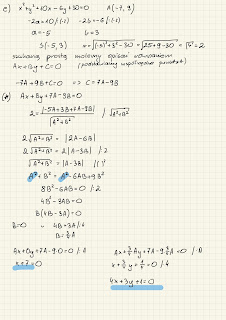 c) x²+y²+10x-6y+30=0 A(-7, 9)
-2a=10 /:(-2) -2b=-6 /:(-2)
a=-5 b=3
S(-5, 3) r=√((-5)²+3²-30) = √(25+9-30) = √4 = 2
szukaną prostą możemy opisać równaniem
Ax+By+C=0 (podstawiamy współrzędne punktu)
-7A+9B+C=0 => C=7A-9B
Ax+By+7A-9B=0
2=|-5A+3B+7A-9B|/√(A²+B²) /·√(A²+B²)
2√(A²+B²) = |2A-6B|
2√(A²+B²) = 2|A-3B| /:2
√(A²+B²) = |A-3B| /()²
A²+B² = A²-6AB+9B²
8B²-6AB=0 /:2
4B²-3AB=0
B(4B-3A)=0
B=0 v 4B=3A /:4
B=3/4 A
Ax+0y+7A-9·0=0 /:A
x+7=0
Ax+3/4Ay+7A-9·3/4A=0 /:A
x+3/4y+1/4=0 /·4
4x+3y+1=0